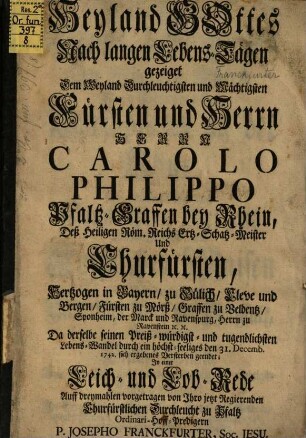 Res. 2°
Or. fun.
397
8
Heyland GOttes
Nach langen Lebens-Tägen
gezeiget
Dem Weyland Durchleuchtigsten und Mächtigsten
Fürsten und Herrn
HERRN
CAROLO
PHILIPPO
Pfaltz-Graffen bey Rhein,
Deß Heiligen Röm. Reichs Ertz-Schatz-Meister
Und
Churfürsten,
Hertzogen in Bayern, zu Gülich, Cleve und
Bergen, Fürsten zu Mörß, Graffen zu Veldentz,
Sponheim, der Marck und Ravenspurg, Herrn zu
Ravenstein ꝛc. ꝛc.
Da derselbe seinen Preiß-würdigst- und tugendlichsten
Lebens-Wandel durch ein höchst-seeliges den 31. Decemb.
1742. sich ergebenes Versterben geendet;
In einer
Leich- und Lob-Rede
Auff dreymahlen vorgetragen von Ihro jetz Regierenden
Churfürstlichen Durchleucht zu Pfaltz
Ordinari-Hoff-Predigern
P. JOSEPHO FRANCKFURTER, Soc. JESU.